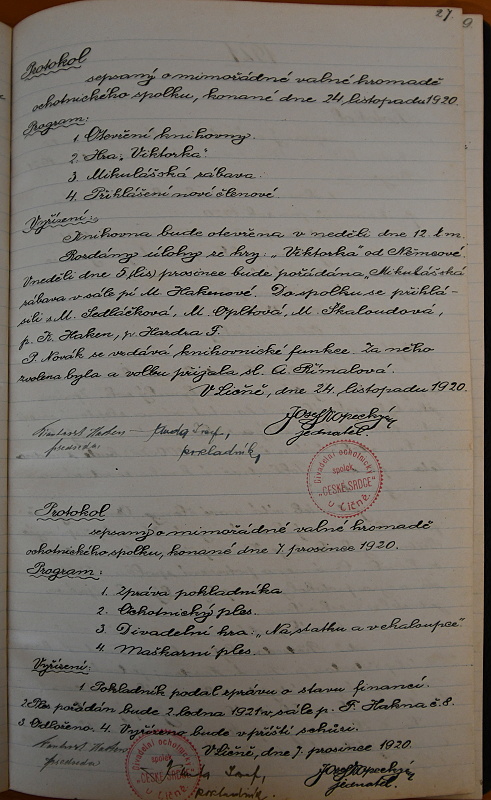 27. 9.
Protokol
sepsaný o mimořádné valné hromadě
ochotnického spolku, konané dne 24. listopadu 1920.
Program:
1. Otevření knihovny.
2. Hra „Viktorka“
3. Mikulášská zábava.
4. Přihlášení noví členové.
Vyřízení:
Knihovna bude otevřena v neděli dne 12 t.m.
Rozdány úlohy se hry: „Viktorka“ od Němcové.
V neděli dne 5 (lis) prosince bude pořádána „Mikulášská
zábava v sále pí M. Hakenové. Do spolku se přihlá-
sili s. M. Sedláčková, M. Opltová, M. Škaloudová,
p. K. Haken, p. Hardra F.
P. Novák se vzdává knihovnické funkce. Za něho
zvolena byla a volbu přijala sl. A. Římalová.
V Lično, dne 24. listopadu 1920.
Josef Kopecký,
jednatel.
Haken
předseda
Josef,
pokladník,
Divadelní ochotnický
spolek
„ČESKÉ SRDCE“
v Ličně.
Protokol
sepsaný o mimořádné valné hromadě
ochotnického spolku, konané dne 7. prosince 1920.
Program:
1. Zpráva pokladníka
2. Ochotnický ples.
3. Divadelní hra: „Na statku a v chaloupce“
4. Maškarní ples.
Vyřízení:
1. Pokladník podal zprávu o stavu financí.
2. Ples pořádán bude 2. ledna 1921 v sále p. F. Hakna č. 8.
3. Odloženo. 4. Vyřízeno bude v příští schůzi.
V Ličně, dne 7. prosince 1920.
Haken
předseda
Divadelní ochotnický
spolek
„ČESKÉ SRDCE“
Josef,
pokladník.
Josef Kopecký,
jednatel.